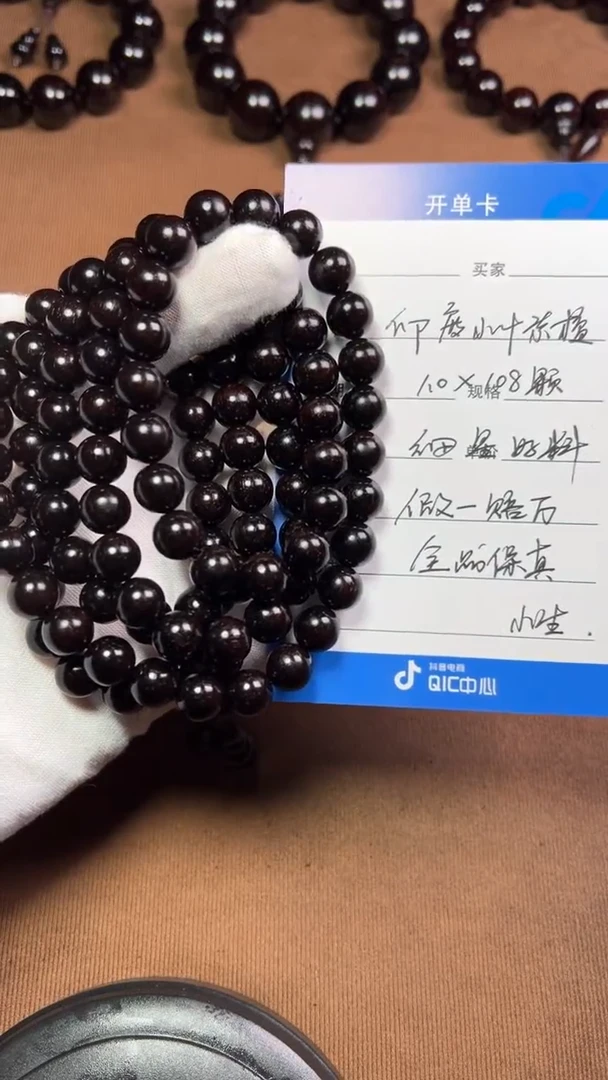 开单卡
买家
印度小叶紫檀
1.0×108颗
规格
细 好料
假一赔万
全品保真
小生.
抖音电商
QIC中心